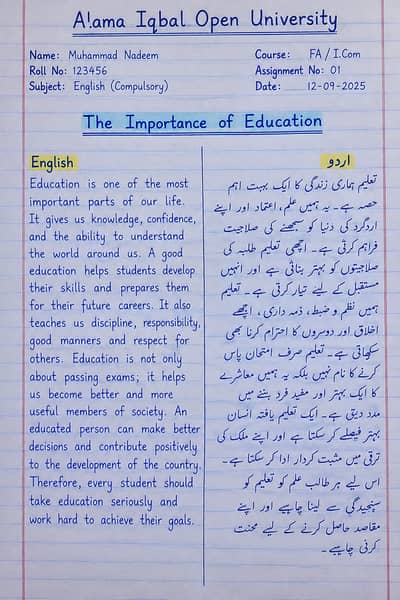 A!ama Iqbal Open University
Name: Muhammad Nadeem
Course: FA / I.Com
Roll No: 123456
Assignment No: 01
Subject: English (Compulsory)
Date: 12-09-2025
The Importance of Education
English
Education is one of the most
important parts of our life.
It gives us knowledge, confidence,
and the ability to understand
the world around us. A good
education helps students develop
their skills and prepares them
for their future careers. It also
teaches us discipline, responsibility,
good manners and respect for
others. Education is not only
about passing exams; it helps
us become better and more
useful members of society. An
educated person can make better
decisions and contribute positively
to the development of the country.
Therefore, every student should
take education seriously and
work hard to achieve their goals.
اردو
تعلیم ہماری زندگی کا ایک بہت اہم
حصہ ہے۔ یہ ہمیں علم، اعتماد اور اپنے
اردگرد کی دنیا کو سمجھنے کی صلاحیت
فراہم کرتی ہے۔ اچھی تعلیم طلبہ کی
صلاحیتوں کو بہتر بناتی ہے اور انہیں
مستقبل کے لیے تیار کرتی ہے۔ تعلیم
ہمیں نظم و ضبط، ذمہ داری، اچھے
اخلاق اور دوسروں کا احترام کرنا بھی
سکھاتی ہے۔ تعلیم صرف امتحان پاس
کرنے کا نام نہیں بلکہ یہ ہمیں معاشرے
کا ایک بہتر اور مفید فرد بننے میں
مدد دیتی ہے۔ ایک تعلیم یافتہ انسان
بہتر فیصلے کر سکتا ہے اور اپنے ملک کی
ترقی میں مثبت کردار ادا کر سکتا ہے۔
اس لیے ہر طالب علم کو تعلیم کو
سنجیدگی سے لینا چاہیے اور اپنے
مقاصد حاصل کرنے کے لیے محنت
کرنی چاہیے۔